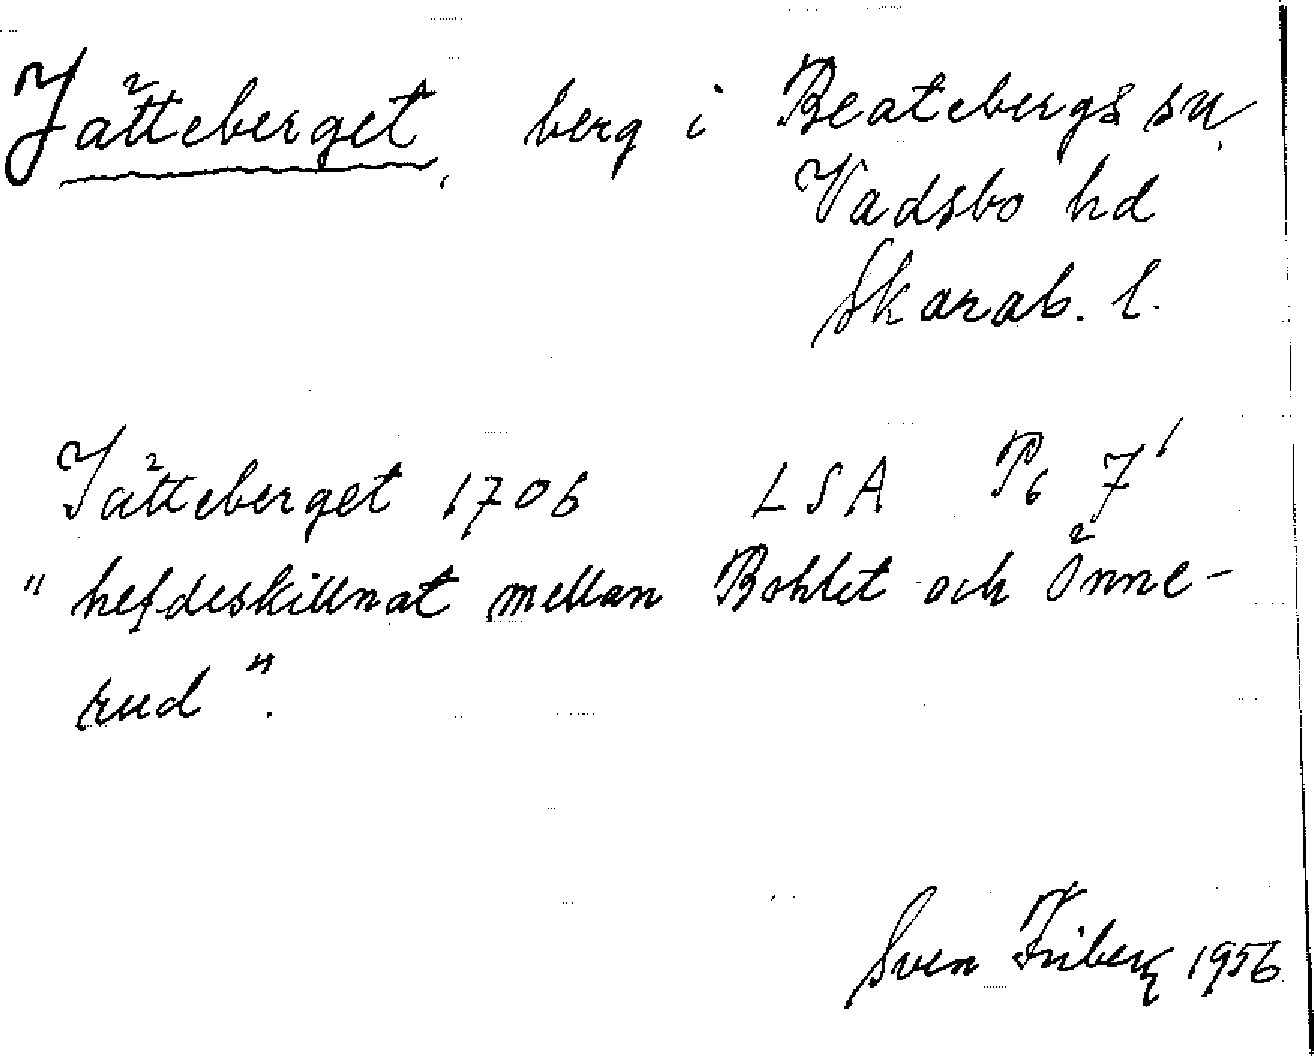 Jätteberget, berg i Beatebergs sn,
Vadsbo hd
Skarab. l.
Jätteberget 1706 LSA P6 7¹
" hefdeskillnat mellan Bohlet och Önne-
rud ".
Sven Friberg 1956